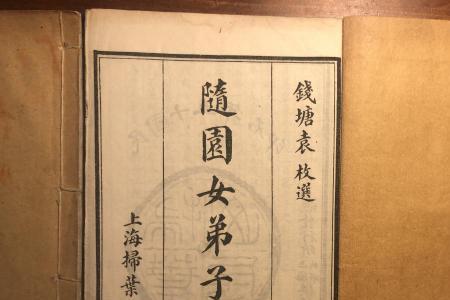 錢塘袁枚選
隨園女弟子
上海掃葉